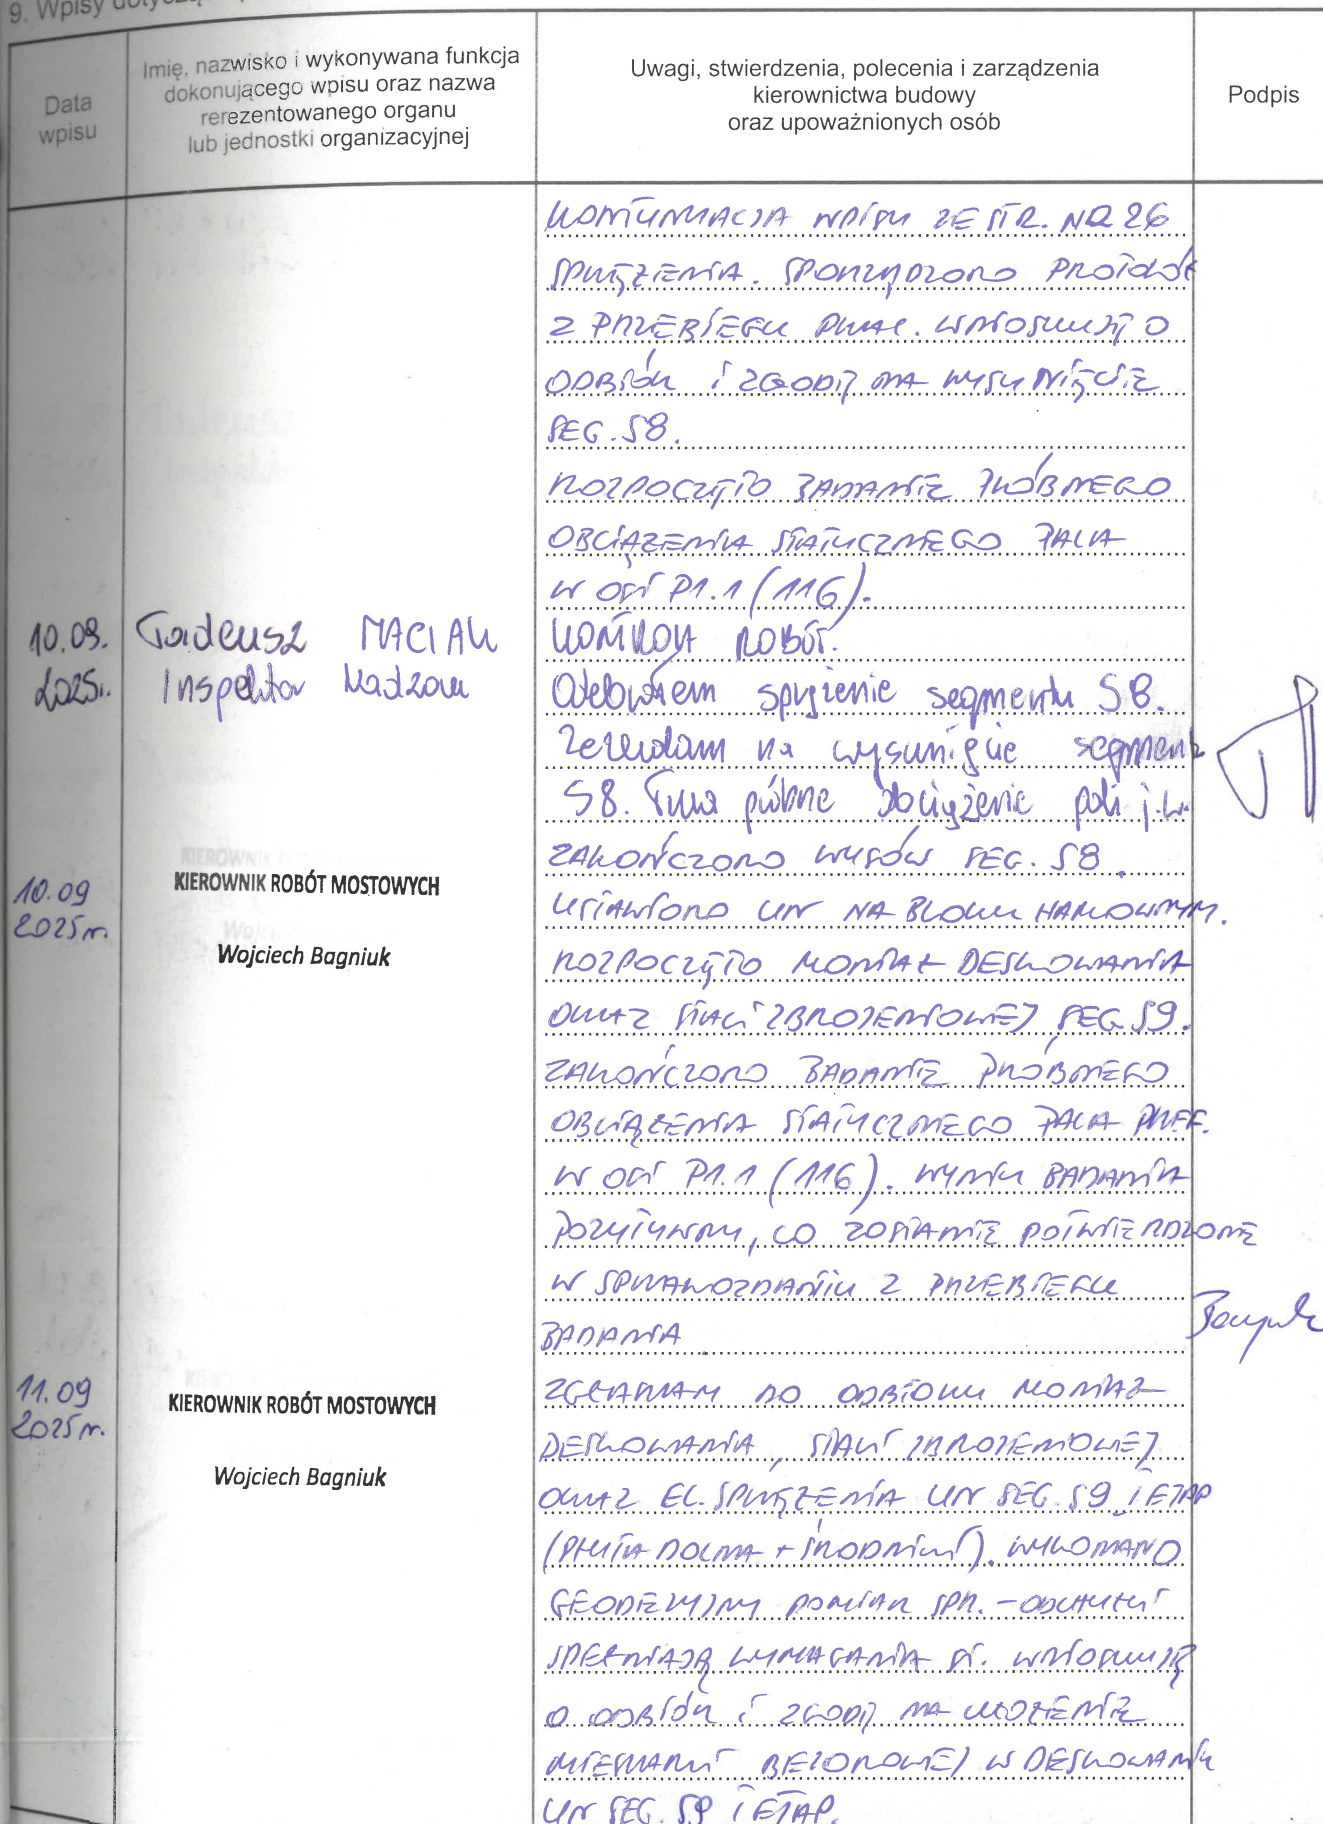 9. Wpisy
Data
wpisu
Imię, nazwisko i wykonywana funkcja
dokonującego wpisu oraz nazwa
rerezentowanego organu
lub jednostki organizacyjnej
Uwagi, stwierdzenia, polecenia i zarządzenia
kierownictwa budowy
oraz upoważnionych osób
Podpis
KONTYNUACJA WPISU ZE STR. NR 26
SPRĘŻENIA. SPORZĄDZONO PROTOKÓŁ
Z PRZEBIEGU PRAC. WNIOSKUJĘ O
ODBIÓR I ZGODĘ NA WYSUNIĘCIE
SEG. S8.
ROZPOCZĘTO BADANIE PRÓBNEGO
OBCIĄŻENIA STATYCZNEGO PALA
W OSI P1.1 (116).
10.09.
2025r.
Tadeusz MACIAK
Inspektor Nadzoru
KONTROLA ROBÓT.
Odebrałem sprężenie segmentu S8.
Zezwalam na wysunięcie segment
S8. Trwa próbne obciążenie pali j.w.
10.09
2025r.
KIEROWNIK ROBÓT MOSTOWYCH
Wojciech Bagniuk
ZAKOŃCZONO WYSÓW SEG. S8.
USTAWIONO UN NA BLOKU HAMOWNYM.
ROZPOCZĘTO MONTAŻ DESKOWANIA
ORAZ STALI ZBROJENIOWEJ SEG. S9.
ZAKOŃCZONO BADANIE PRÓBNEGO
OBCIĄŻENIA STATYCZNEGO PALA PREF.
W OSI P1.1 (116). WYNIK BADANIA
POZYTYWNY, CO ZOSTANIE POTWIERDZONE
W SPRAWOZDANIU Z PRZEBIEGU
BADANIA.
11.09
2025r.
KIEROWNIK ROBÓT MOSTOWYCH
Wojciech Bagniuk
ZGŁASZAM DO ODBIORU MONTAŻ
DESKOWANIA, STALI ZBROJENIOWEJ
ORAZ EL. SPRĘŻENIA UN SEG. S9 I ETAP
(PŁYTA DOLNA + ŚRODNIKI). WYKONANO
GEODEZYJNY POMIAR SPR. - ODCHYŁKI
SPEŁNIAJĄ WYMAGANIA ST. WNIOSKUJĘ
O ODBIÓR I ZGODĘ NA UŁOŻENIE
MIESZANKI BETONOWEJ W DESKOWANIU
UN SEG. S9 I ETAP.